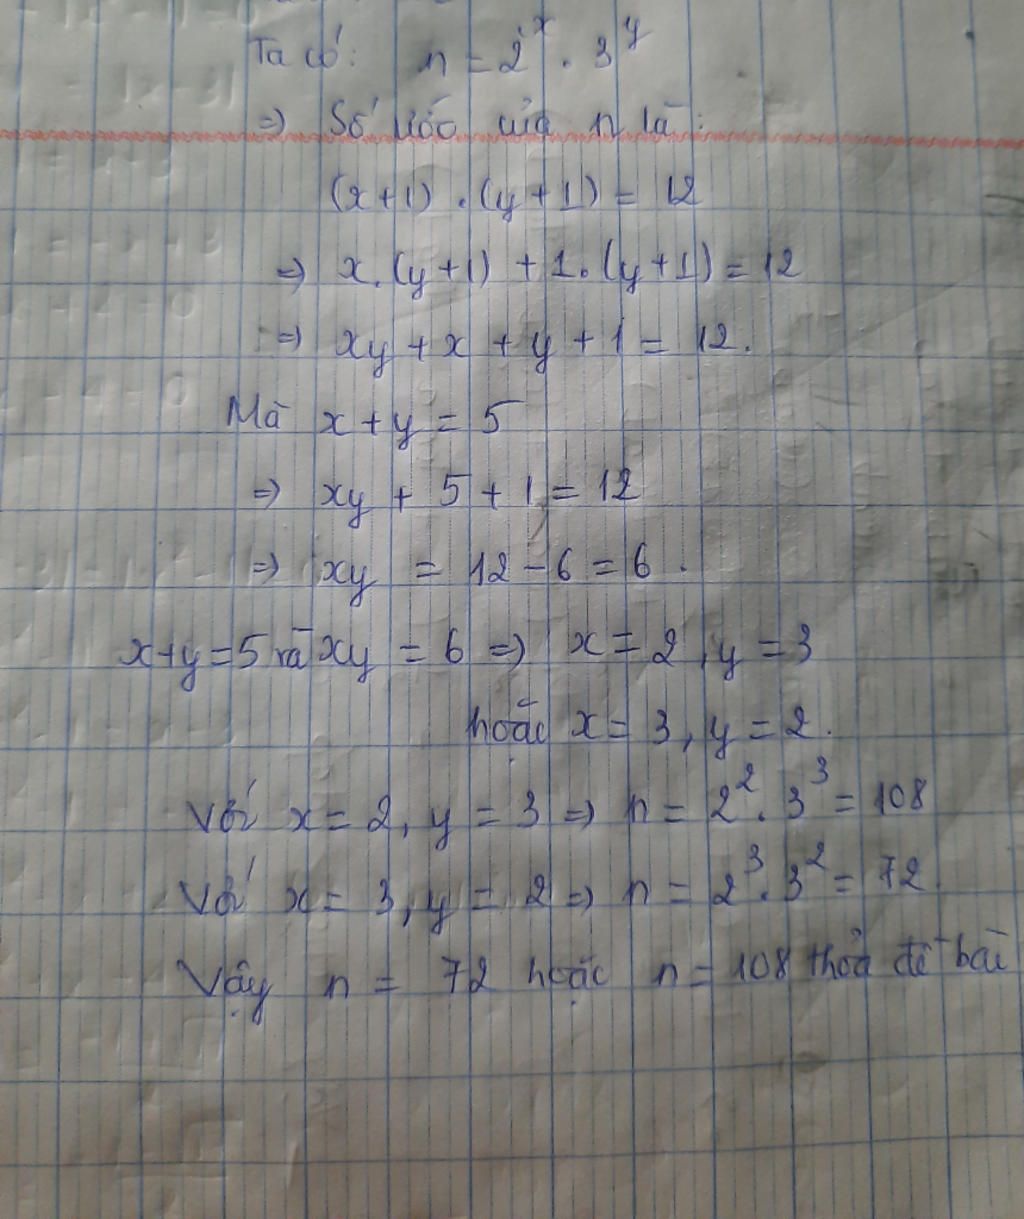 Ta có: n = 2^x . 3^y
=) Số ước của n là:
(x+1) . (y+1) = 12
=) x.(y+1) + 1.(y+1) = 12
=) xy + x + y + 1 = 12.
Mà x + y = 5
=) xy + 5 + 1 = 12
=) xy = 12 - 6 = 6.
x+y=5 và xy = 6 =) x = 2, y = 3
hoặc x = 3, y = 2.
Với x = 2, y = 3 =) n = 2^2 . 3^3 = 108
Với x = 3, y = 2 =) n = 2^3 . 3^2 = 72
Vậy n = 72 hoặc n = 108 thoả đề bài